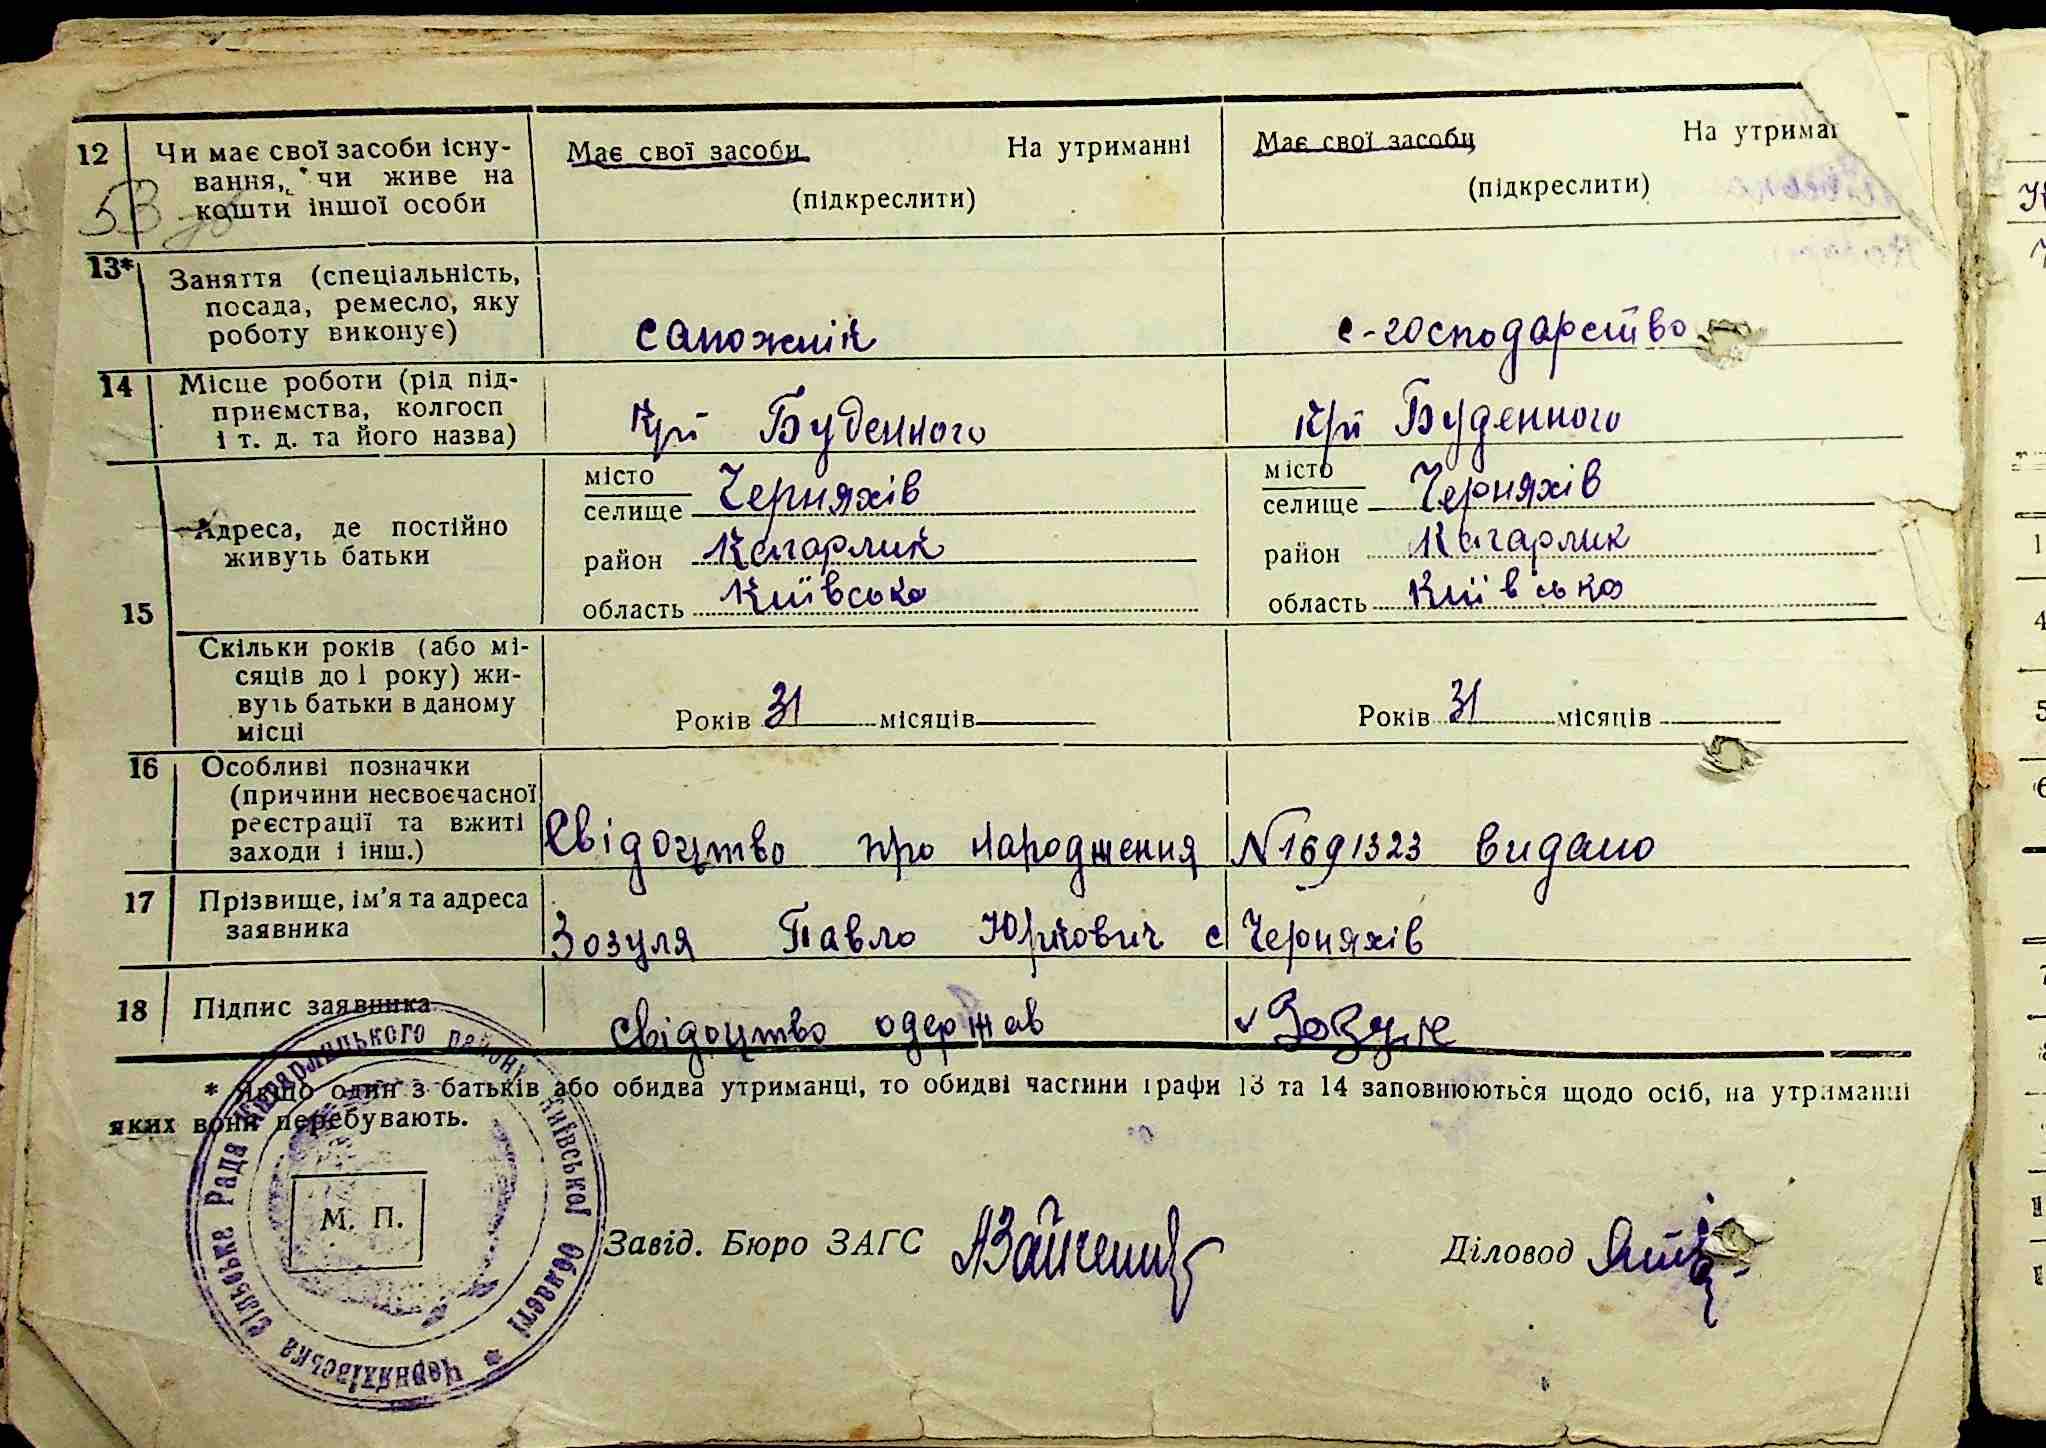 12 Чи має свої засоби існу- Має свої засоби На утриманні Має свої засоби На утрима
вання, чи живе на (підкреслити) (підкреслити)
53 кошти іншої особи
13* Заняття (спеціальність,
посада, ремесло, яку
роботу виконує) сапожнік с-господарство
14 Місце роботи (рід під-
приємства, колгосп
і т. д. та його назва) Буденного Буденного
місто Черняхів місто Черняхів
селище селище
Адреса, де постійно
живуть батьки район Кагарлик район Кагарлик
область Київська область Київська
15
Скільки років (або мі-
сяців до 1 року) жи-
вуть батьки в даному Років 31 місяців Років 31 місяців
місці
16 Особливі позначки
(причини несвоєчасної
реєстрації та вжиті
заходи і інш.) Свідоцтво про народження №1691323 видано
17 Прізвище, ім'я та адреса
заявника Зозуля Павло Юркович с Черняхів
18 Підпис заявника свідоцтво одержав Зозуля
* Якщо один з батьків або обидва утриманці, то обидві частини графи 13 та 14 заповнюються щодо осіб, на утриманні
яких вони перебувають.
Черняхівська Сільська Рада Кагарлицького району Київської Області
М. П.
Завід. Бюро ЗАГС Діловод